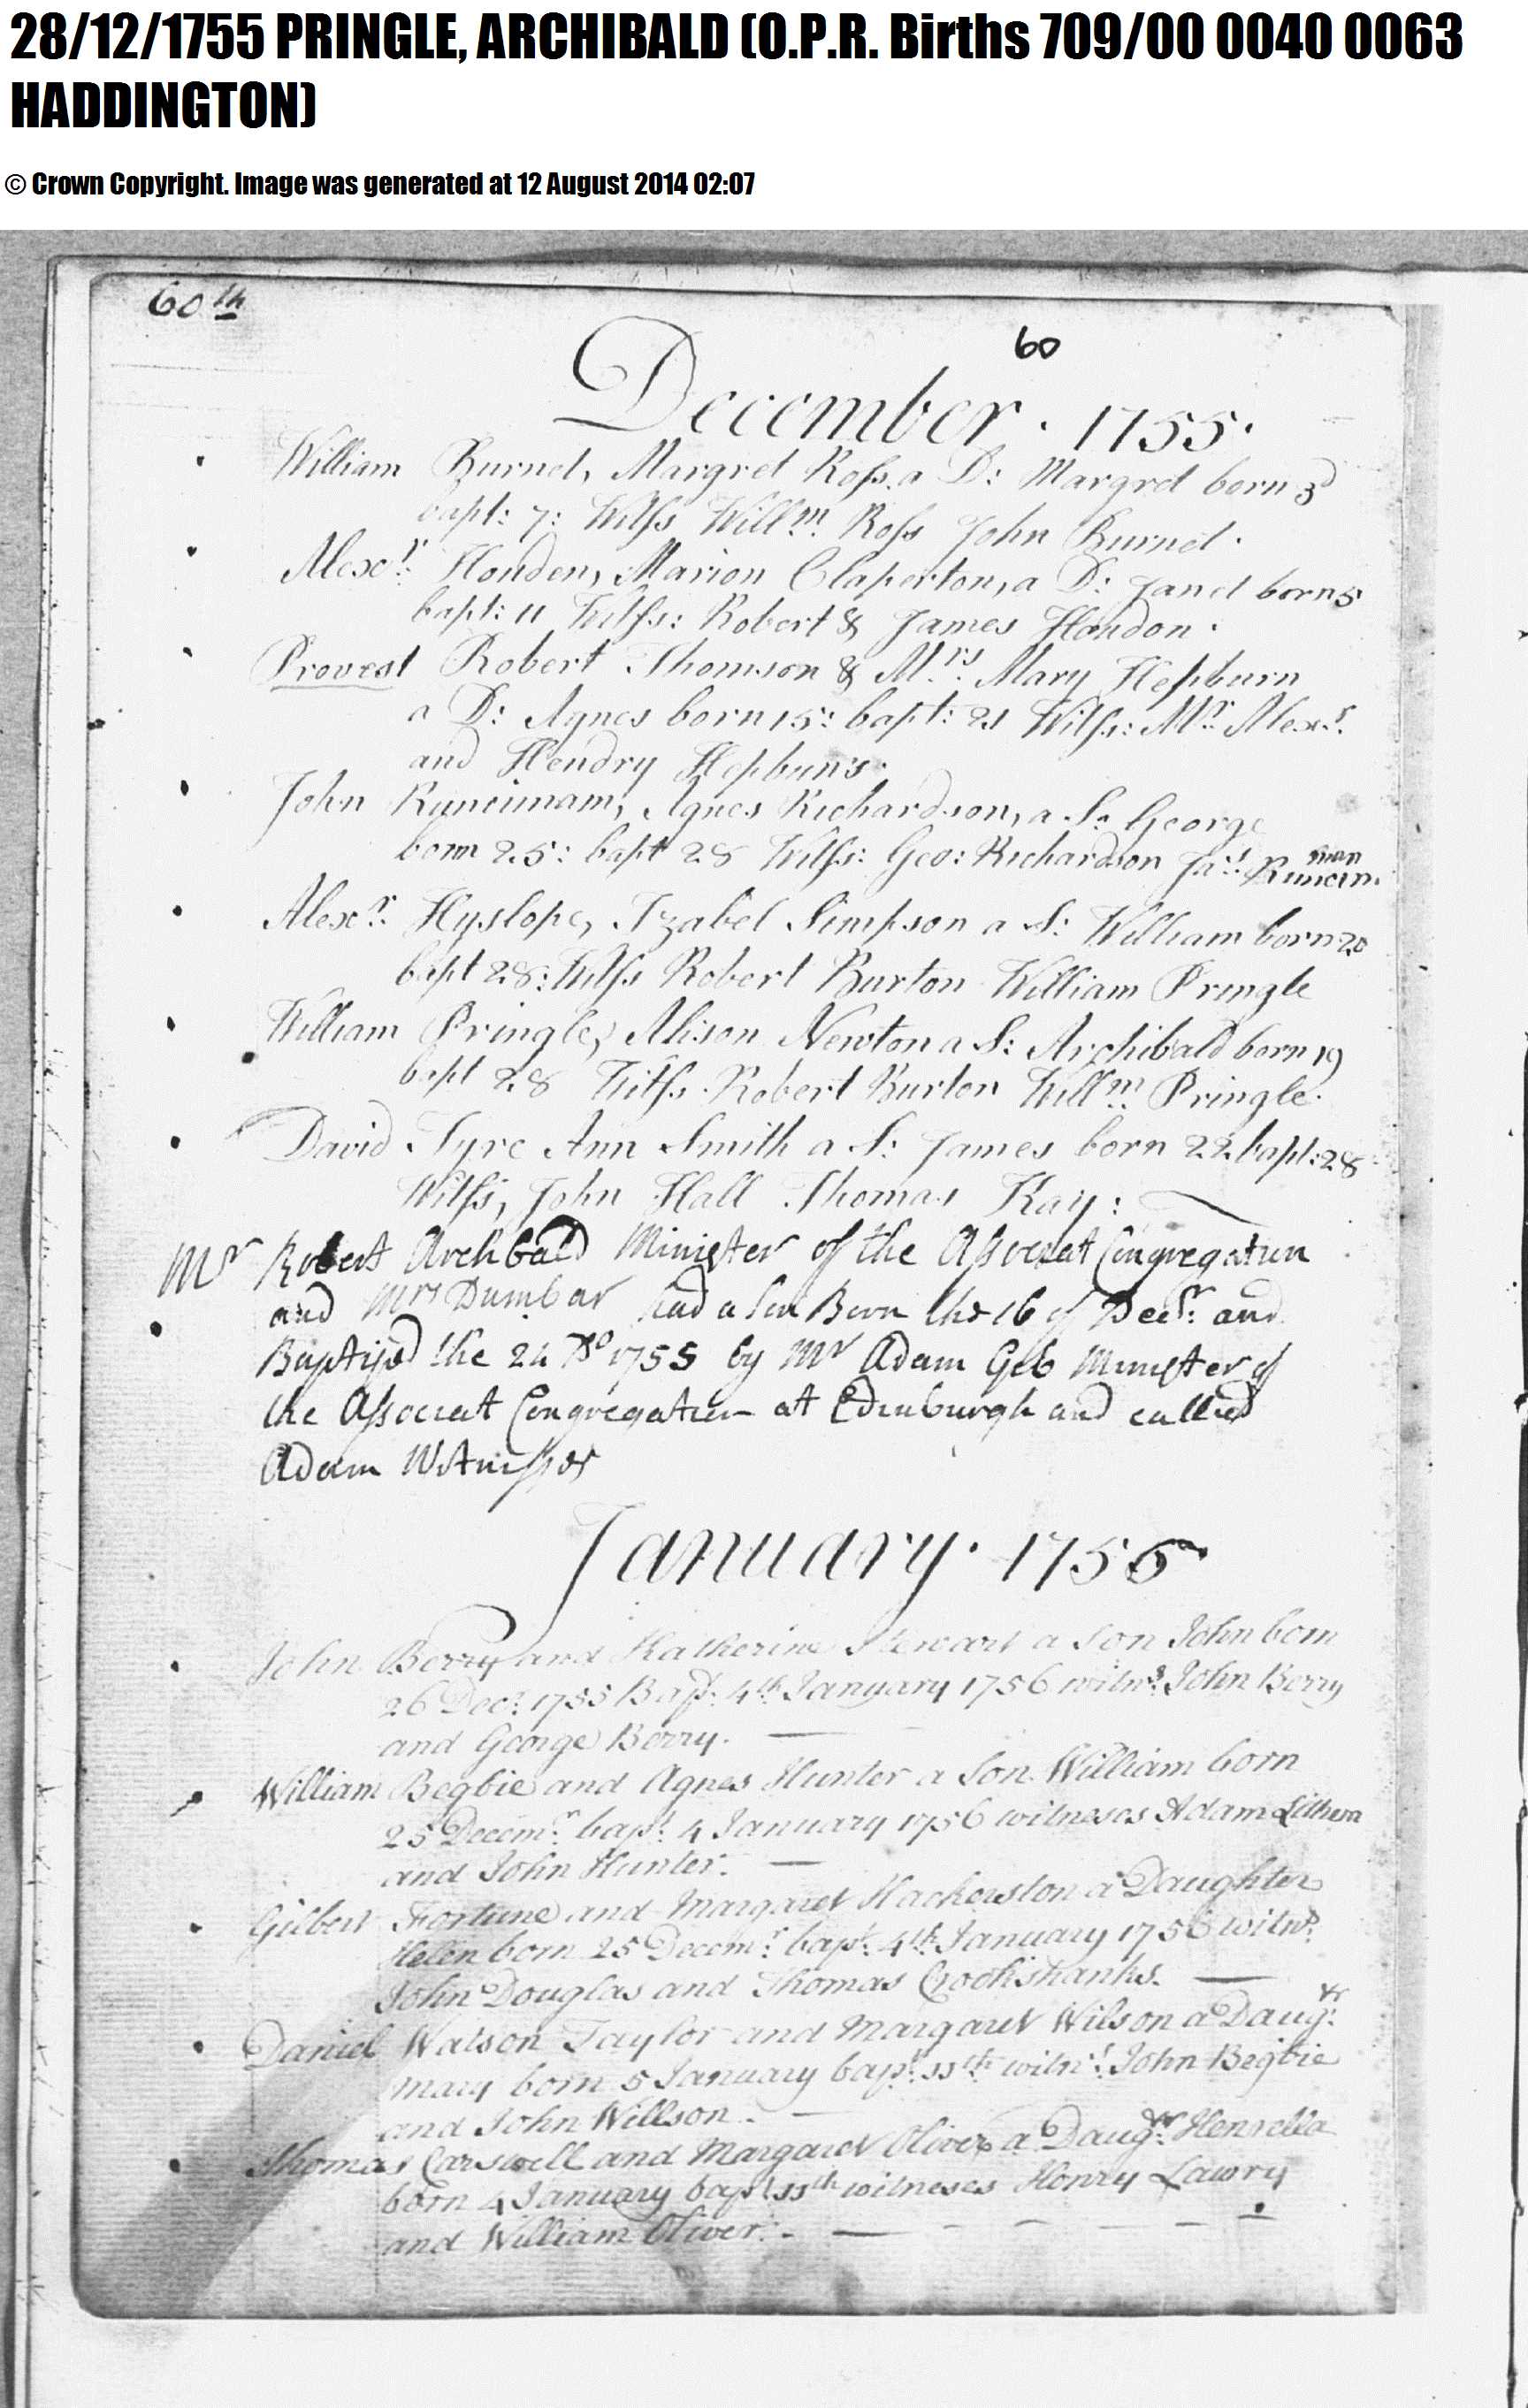 28/12/1755 PRINGLE, ARCHIBALD (O.P.R. Births 709/00 0040 0063
HADDINGTON)
© Crown Copyright. Image was generated at 12 August 2014 02:07
60th
60
December . 1755.
William Burnet, Margret Ross a D: Margret born 3d
bapt: 7: Witss Willm. Ross John Burnet.
Alexr. Houden, Marion Claperton, a D: Janet born 5
bapt: 11 Witss: Robert & James Houdon.
Provest Robert Thomson & Mrs. Mary Hepburn
a D: Agnes born 15: bapt: 21 Witss: Mr. Alexr.
and Hendry Hepburns.
John Runcimam, Agnes Richardson, a S: George
born 25: bapt 28 Witss: Geo: Richardson Jas. Runcin.
man
Alexr. Hyslope, Izabel Simpson a S: William born 20
bapt 28: Witss Robert Burton William Pringle
William Pringle, Alison Newton a S: Archibald born 19
bapt 28 Witss. Robert Burton Willm. Pringle.
David Tyre Ann Smith a S: James born 22 bapt: 28
Witss, John Hall Thomas Kay:
Mr Robert Archbald Minister of the Assoceat Congregation
and Mrs Dumbar had a Son Born the 16 of Decr. and
Baptised the 24 Do 1755 by Mr Adam Geb Minister of
the Assoceat Congregation at Edinburgh and called
Adam Witnisses
January. 1756
John Berry and Katherine Stewart a Son John born
26 Decr. 1755 Bapt. 4th January 1756 witns. John Berry
and George Berry.
William Begbie and Agnes Hunter a Son William born
25 Decemr. bapt. 4 January 1756 witneses Adam
and John Hunter.
Gilbert Fortune and Margaret Hackerston a Daughter
Helen born 25 Decemr. bapt. 4th January 1756 witns.
John Douglas and Thomas Crockshanks.
Daniel Watson Taylor and Margaret Wilson a Daugtr.
Mary born 5 January bapt. 11th witns. John Begbie
and John Willson.
Thomas Carswell and Margaret Oliver a Daugtr. Henrella
born 4 January bapt 11th witneses Henry Lawry
and William Oliver.